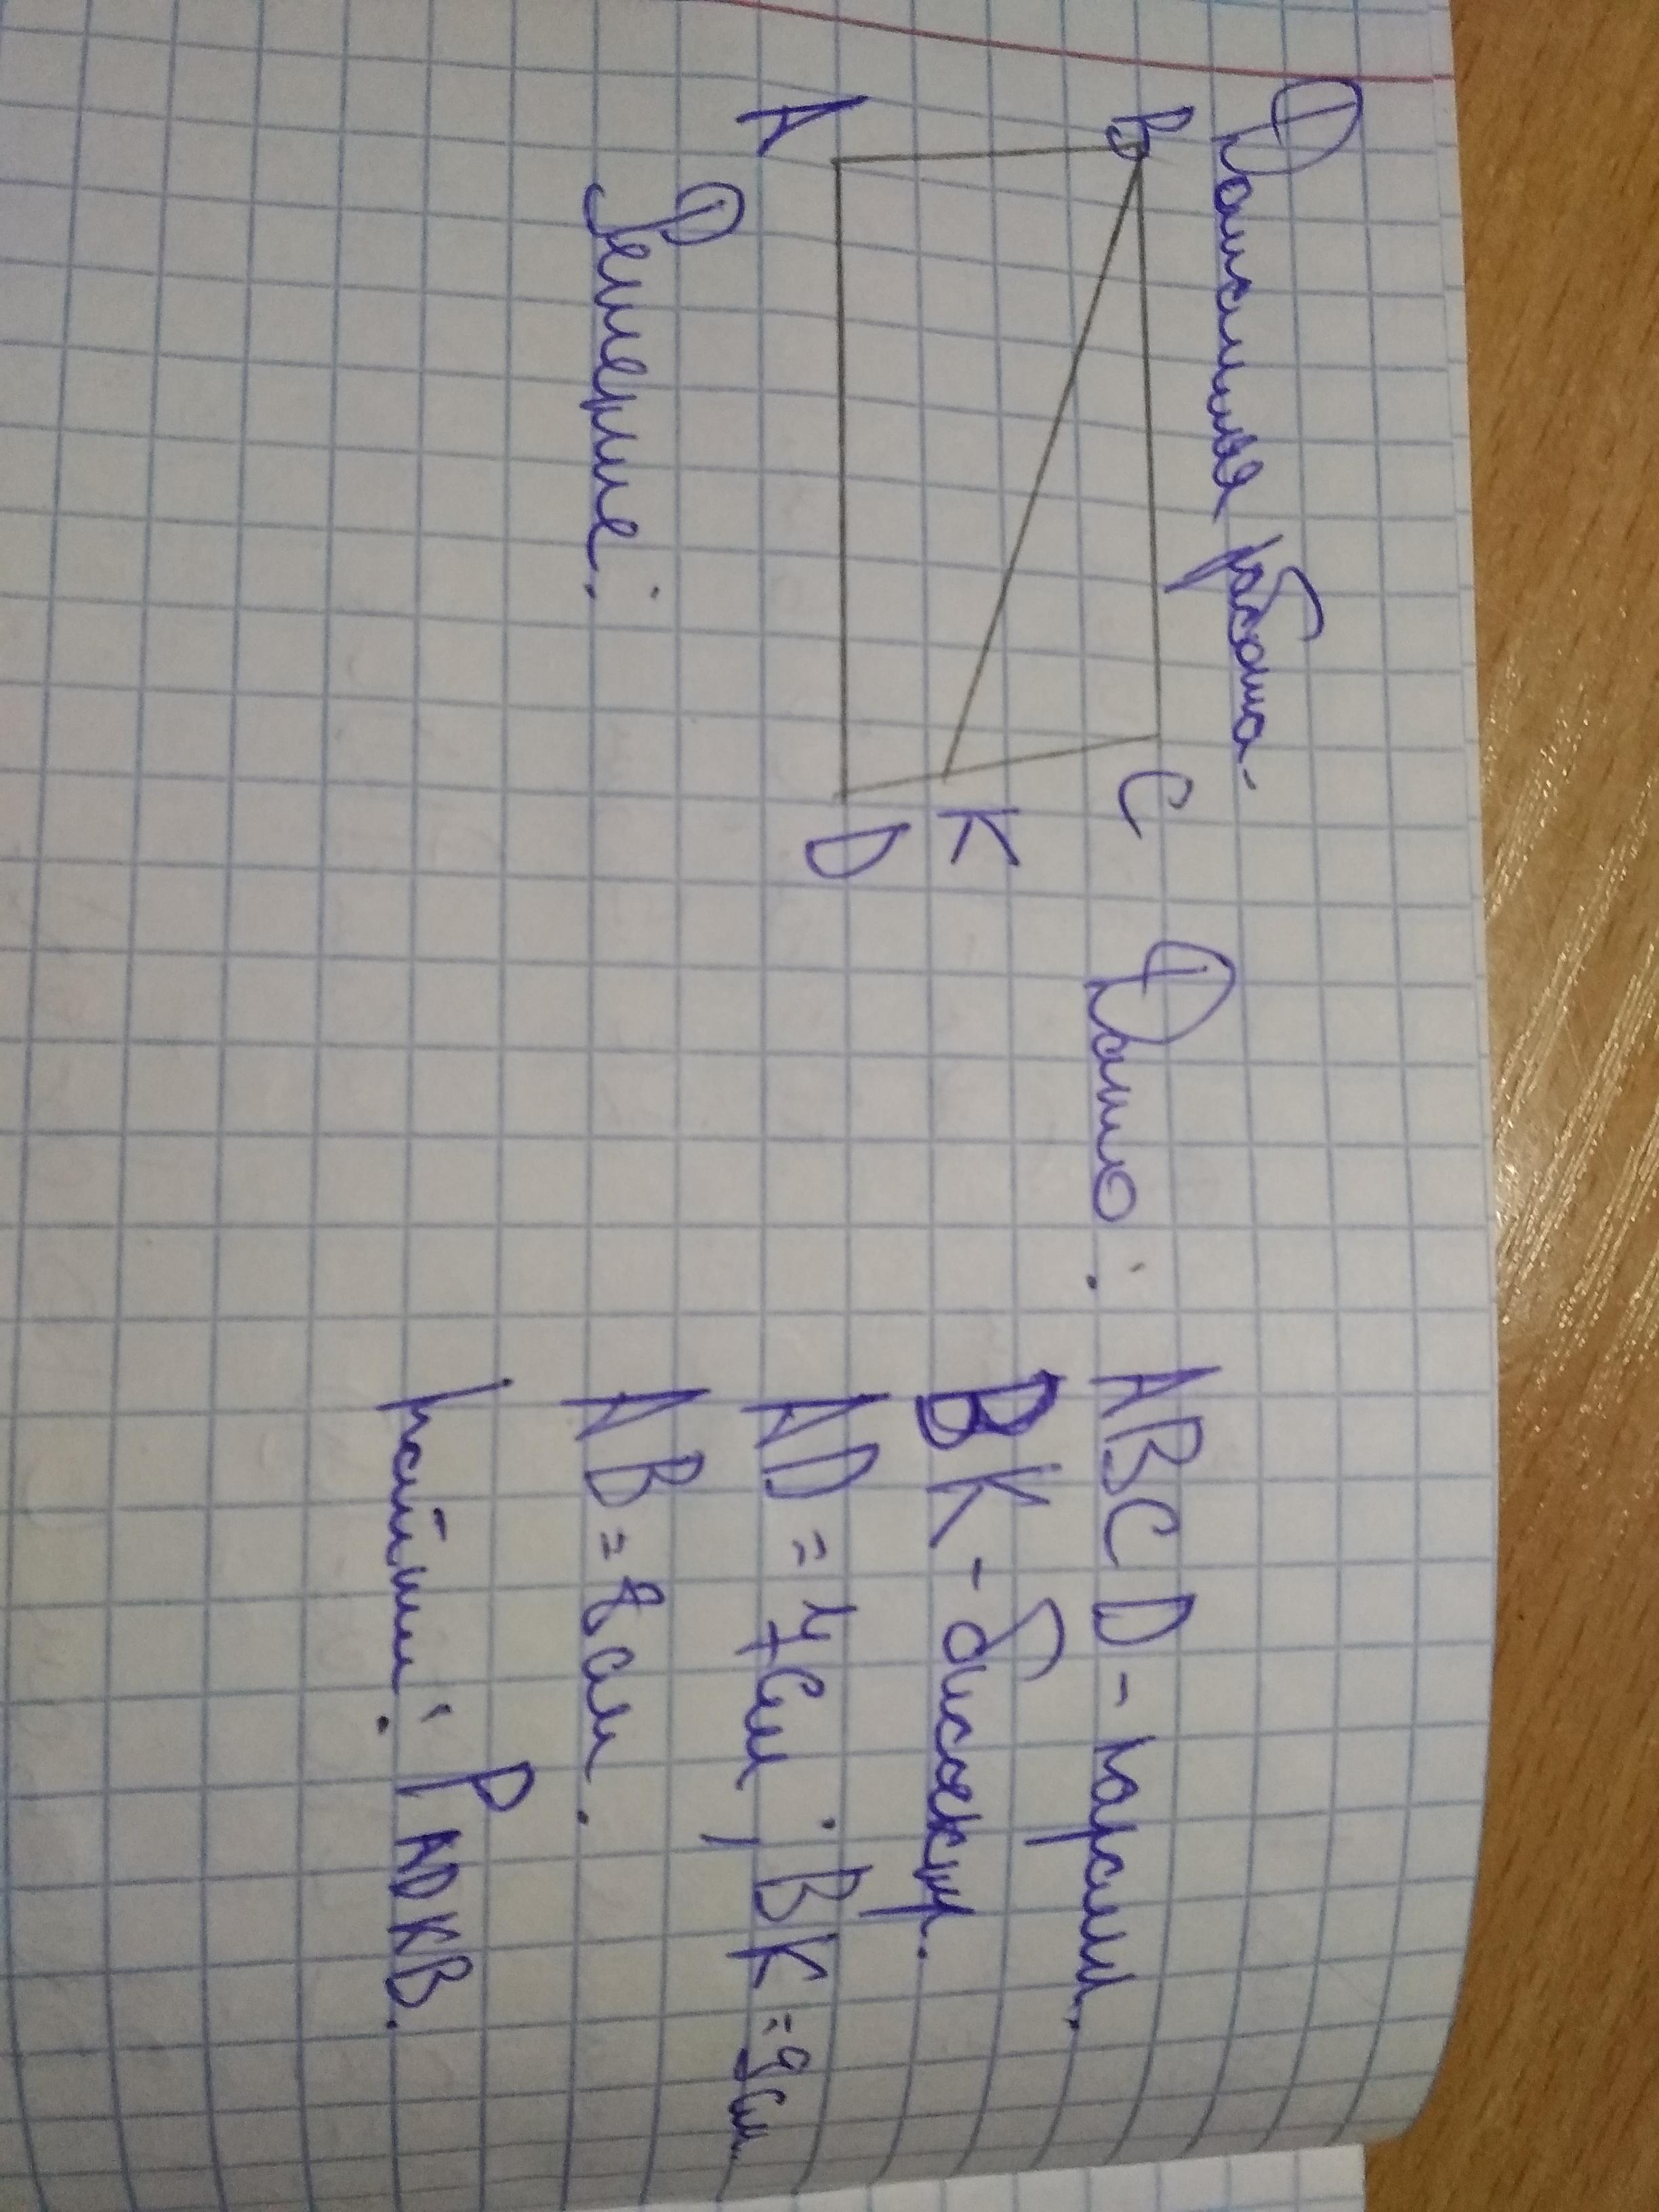 Домашняя работа.
B
C
Дано: ABCD - паралл.
K
BK - биссектр.
A
D
AD = 4см; BK = 9см.
Решение:
AB = 8см.
Найти: P ADKB.